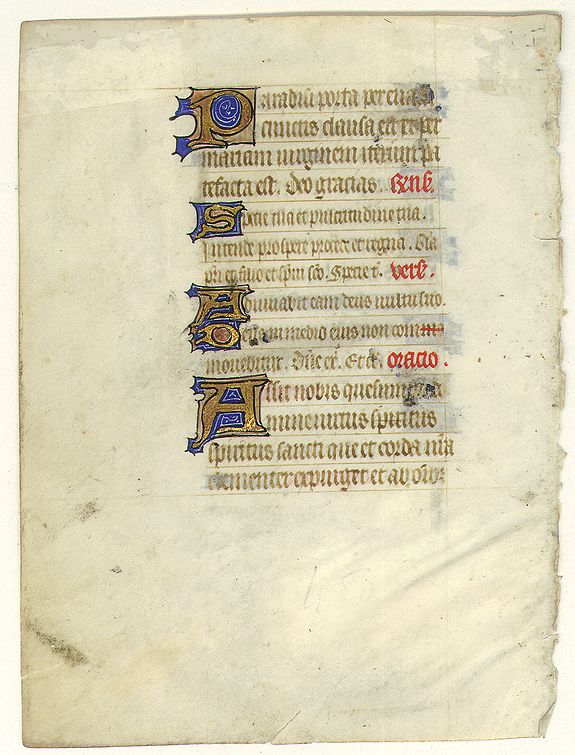 Paradisi porta per euā
cunctis clausa est et per
mariam uirginem iterum pa
tefacta est. Deo gracias. Rens̄.
Specie tua et pulcritudine tua.
Intende prospere procede et regna. Gla
pr̄i et filio et sp̄ui sc̄o. Specie t. vers̄.
Adiuuabit eam deus uultu suo.
Deus in medio eius non com
mouebitur. Dn̄e ex. Et cl. oracio.
Assit nobis quesumus
mine uirtus spiritus
spiritus sancti que et corda nr̄a
clementer expurget et ab om̄ibȝ